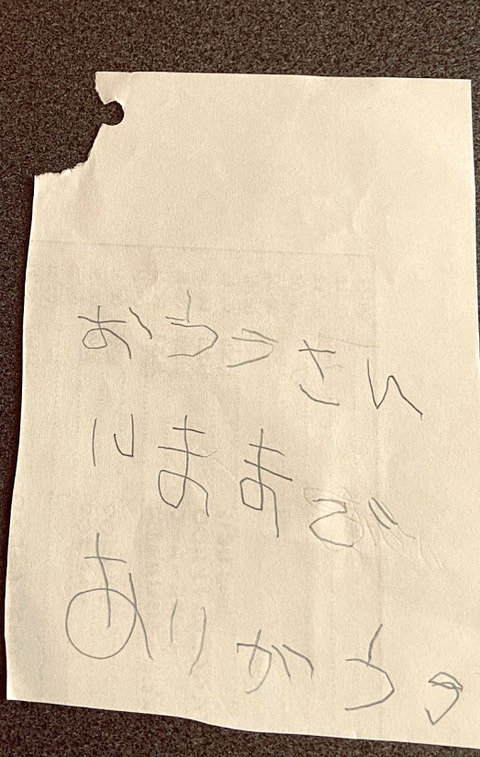 おとうさん
いままで
ありがとう